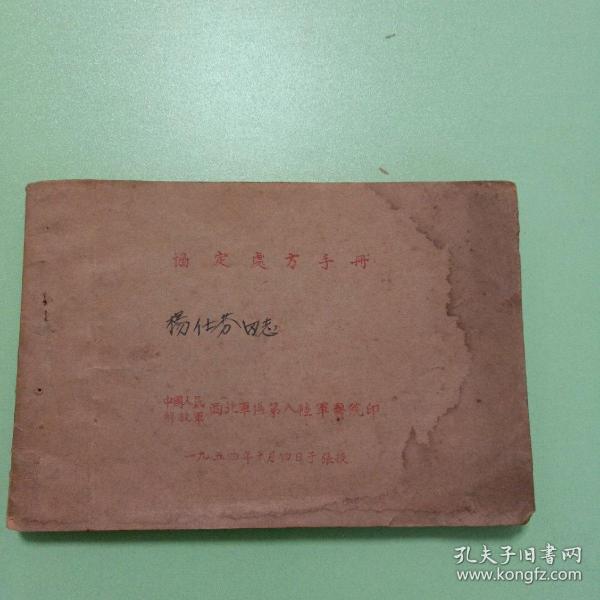 協定處方手冊
楊仕芬同志
中國人民
解放軍 西北軍區第八陸軍醫院印
一九五四年 月四日于張掖
孔夫子旧书网
www.kongfz.com